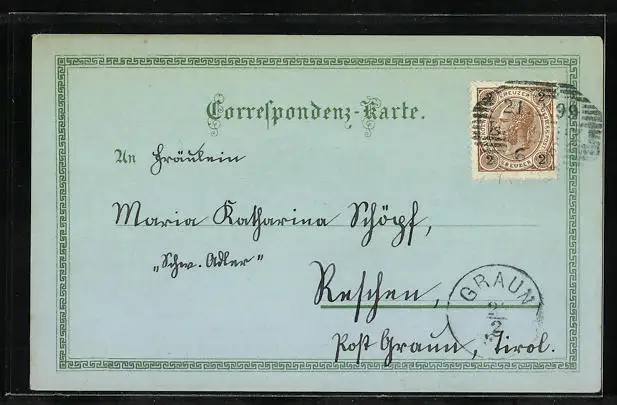 Correspondenz-Karte.
An Fräulein
Maria Katharina Schöpf,
„Schw. Adler"
Reschen,
Post Graun, Tirol.
KREUZER
2 2
KREUZER
21 2 99
GRAUN
2